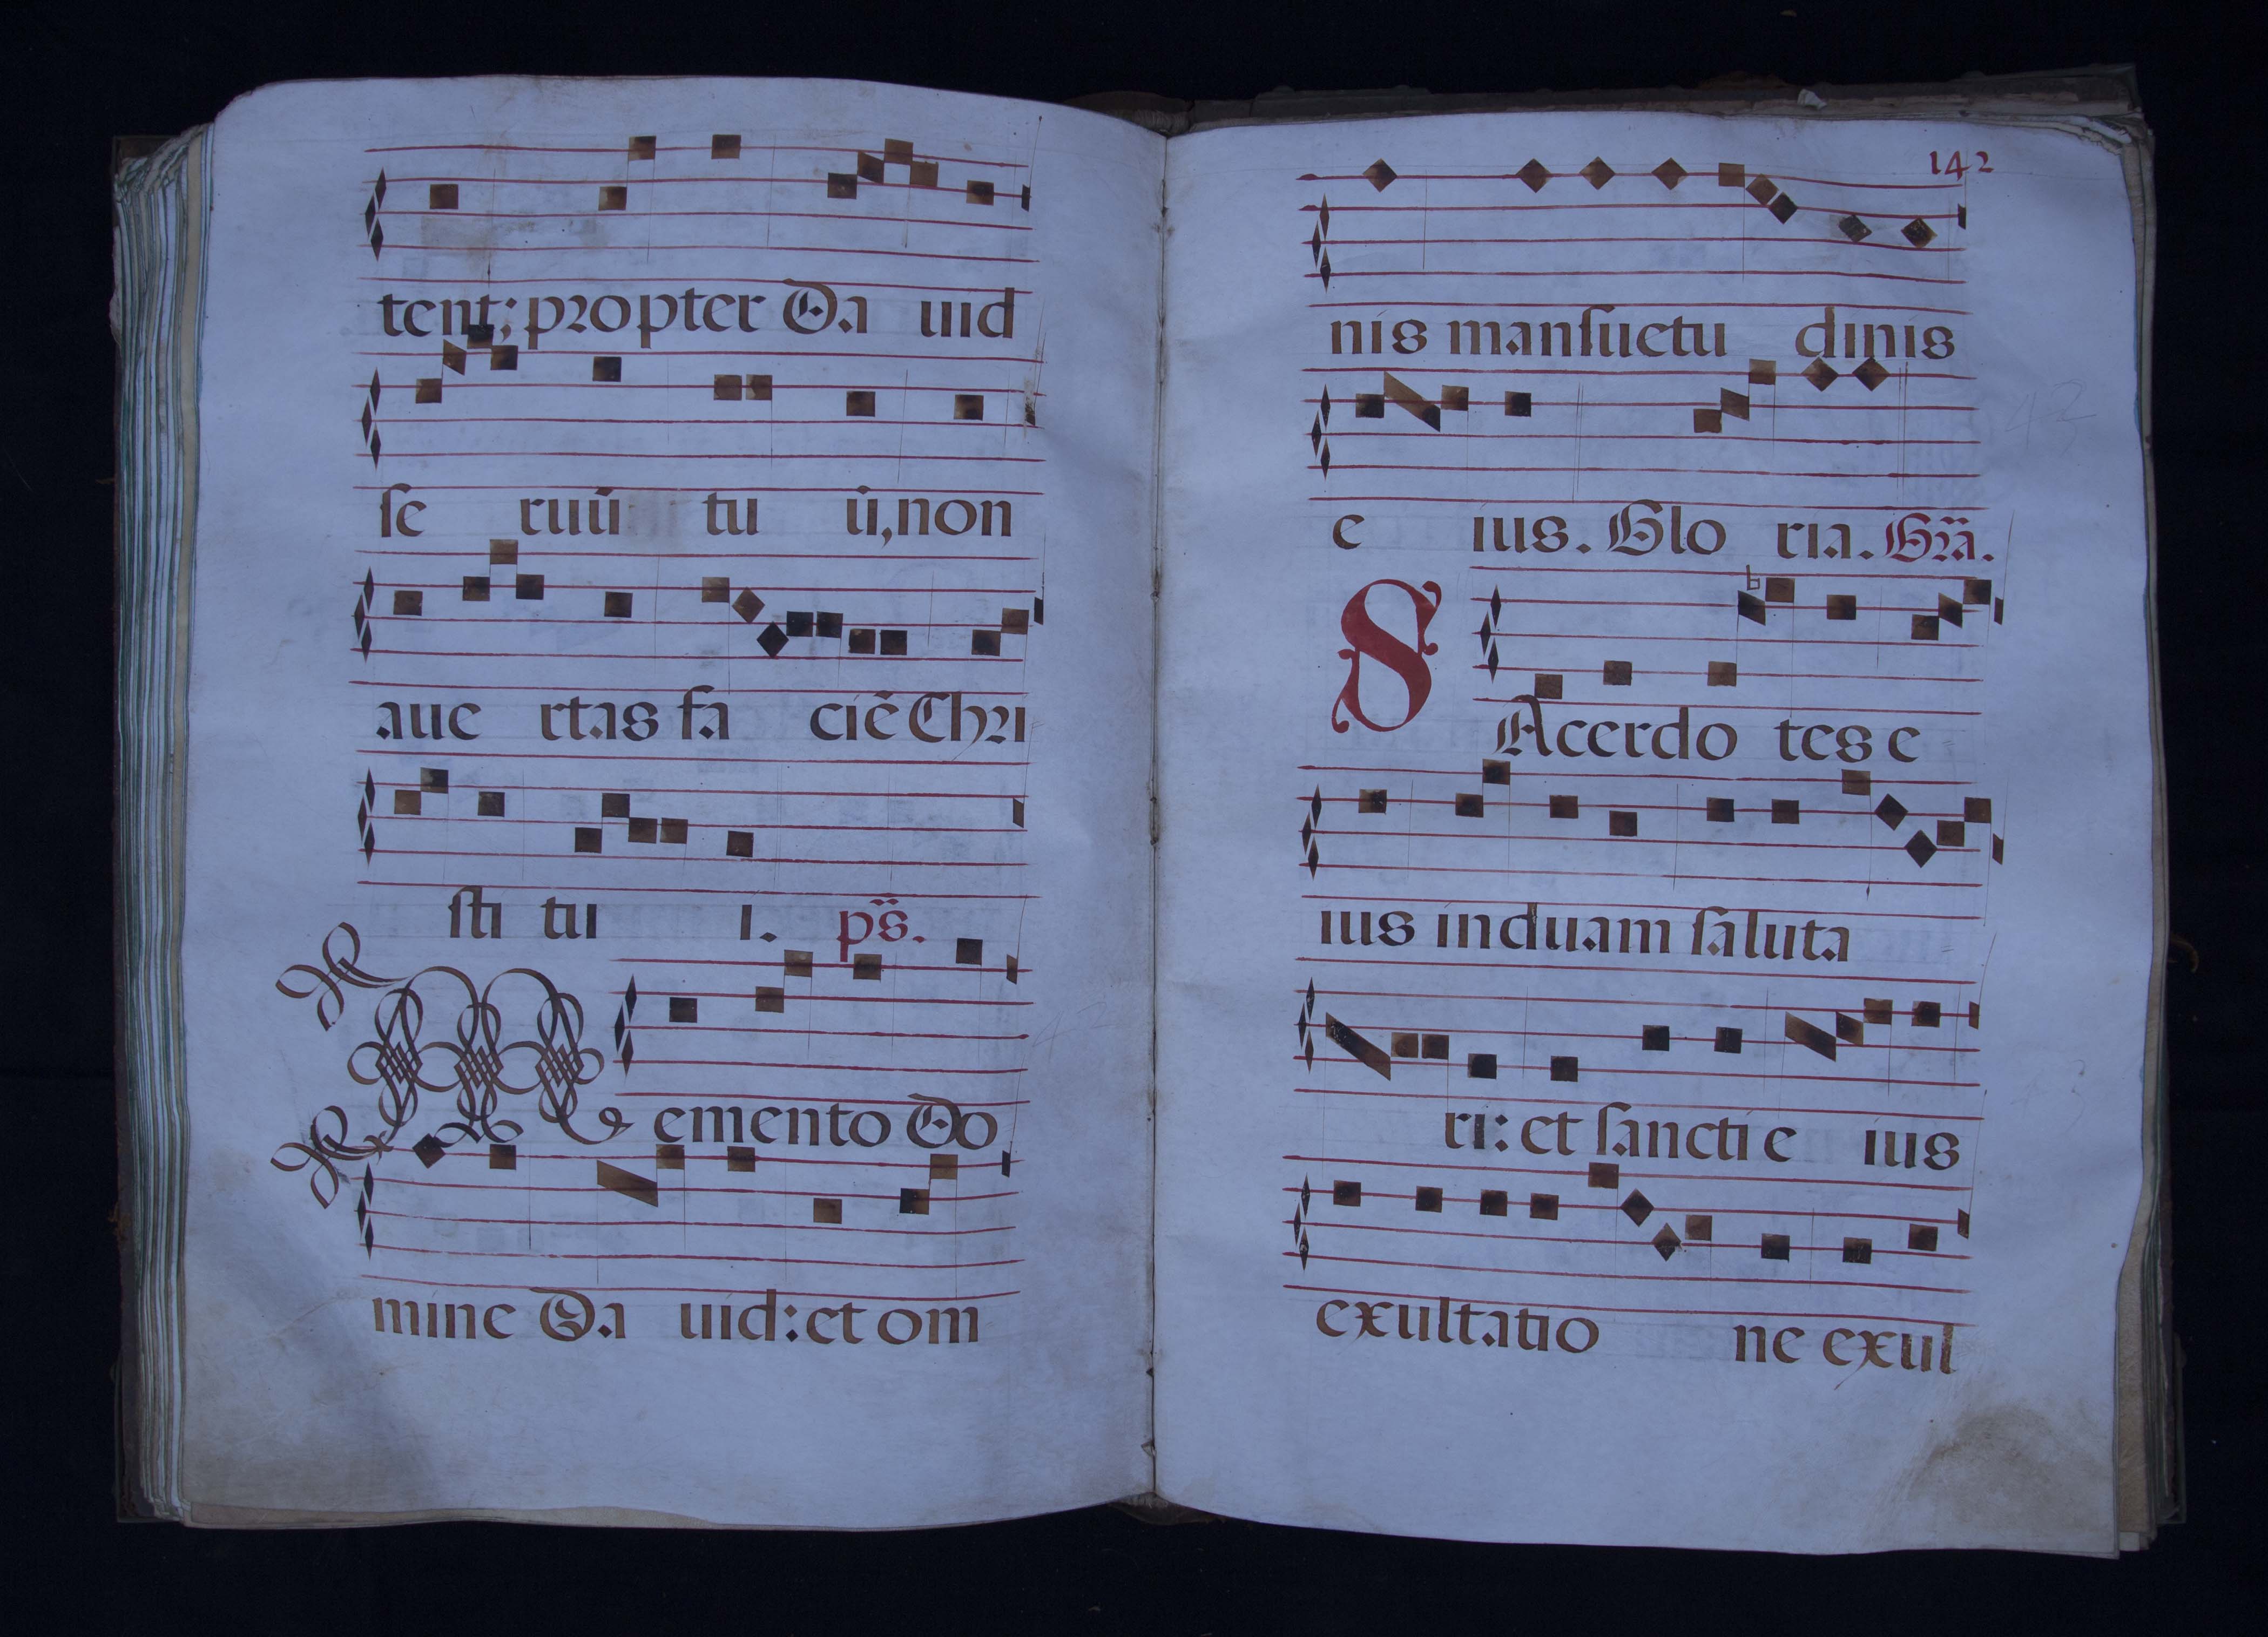 tent; propter Da uid
se ruuẽ tu ũ, non
aue rtas fa ciẽ Chri
sti tu i. ps̈.
M emento Do
mine Da uid: et om
142
nis mansuetu dinis
e ius. Glo ria. Gr̃a.
S Acerdo tes e
ius induam saluta
ri: et sancti e ius
exultatio ne exul